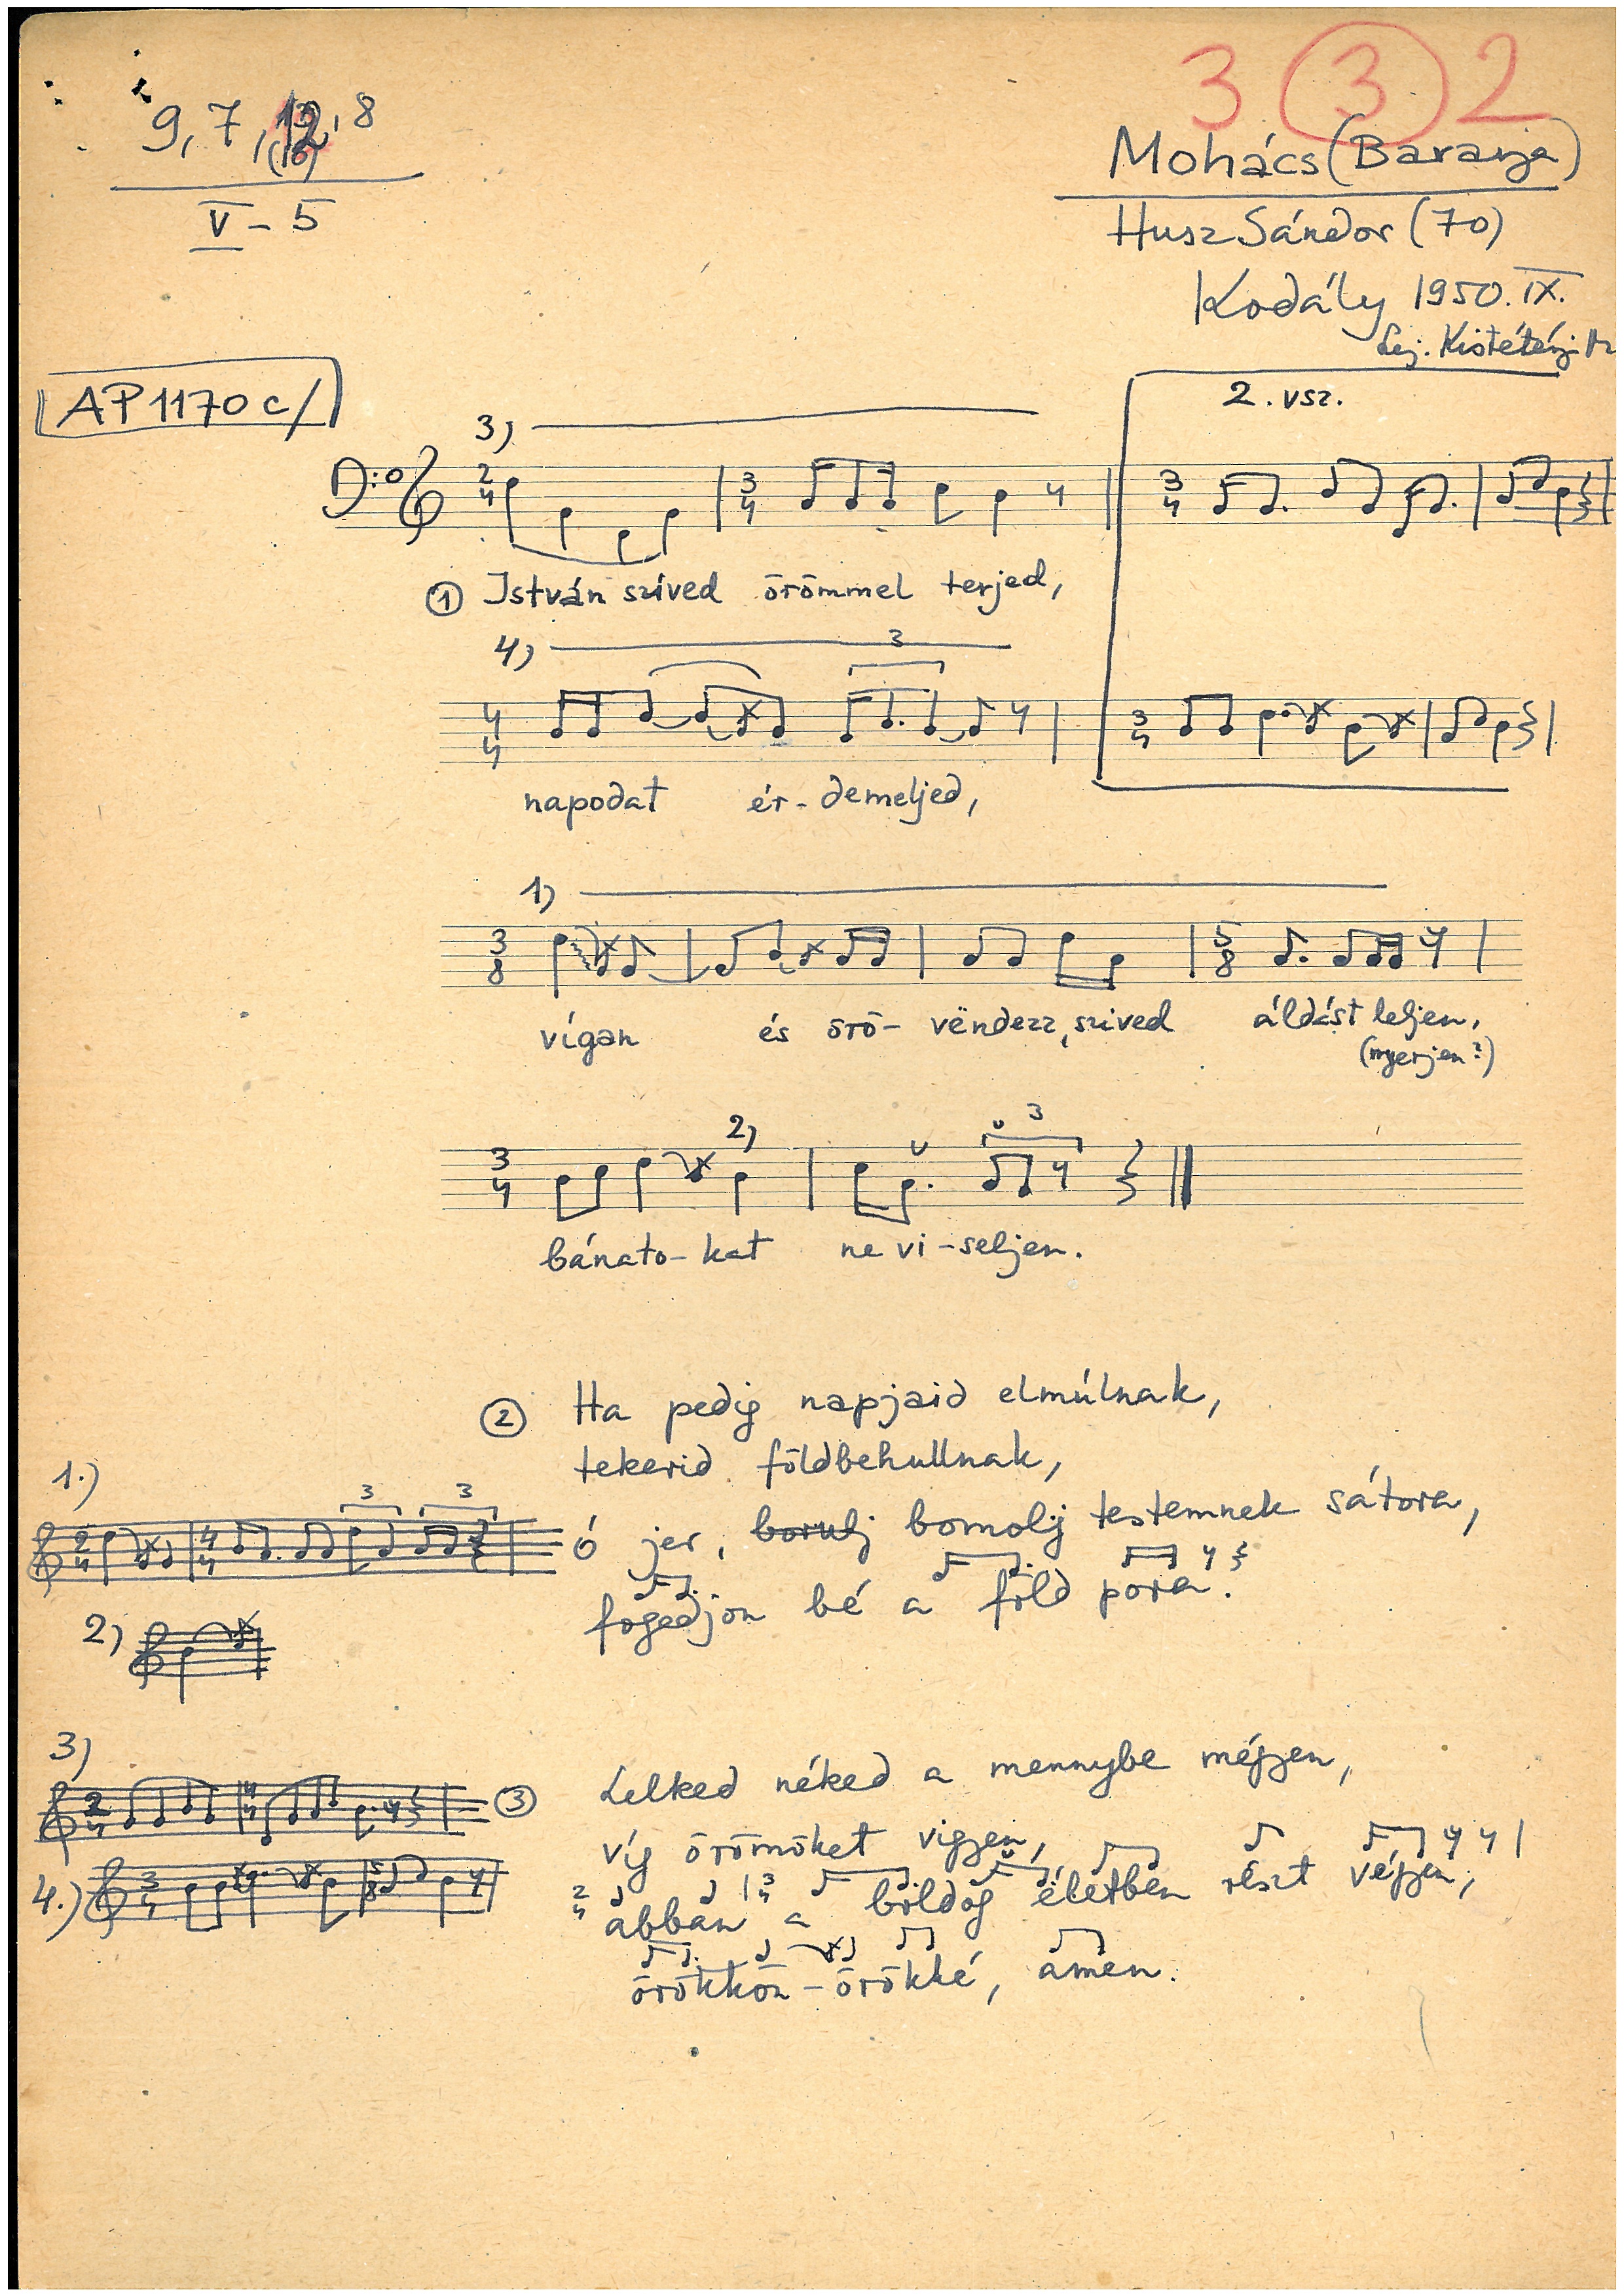 3 3 2
9, 7, 12, 8
(16)
V - 5
Mohács (Baranya)
Husz Sándor (70)
Kodály 1950. IX.
Lej. Kistétényi M
AP 1170 c/
2. vsz.
3)
① István szíved örömmel terjed,
4)
3
napodat ér-demeljed,
1)
vígan és örö- vëndezz, szived áldást leljen,
(nyerjen?)
2)
3
bánato- kat ne vi-seljen.
② Ha pedig napjaid elmúlnak,
tekerid földbehullnak,
1.)
3 3
ó jer, borulj bomolj testemnek sátora,
fogadjon bé a föld pora.
2)
3)
③ Lelked néked a mennybe mégyen,
víg örömöket vigyen,
4.)
abban a boldog életben részt végyen,
örökkön-örökké, ámen.